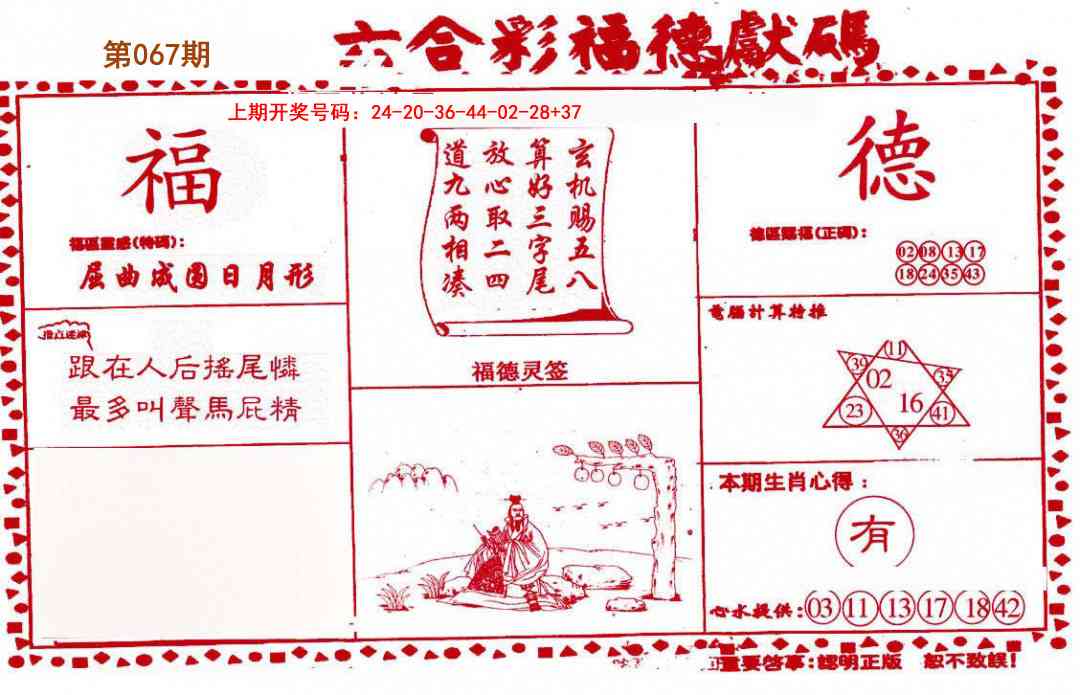 第067期
六合彩福德獻碼
上期开奖号码：24-20-36-44-02-28+37
福
福區靈感(特碼)：
屈曲成圆日月形
跟在人后摇尾憐
最多叫聲馬屁精
玄机赐五八
算好三字尾
放心取二四
道九两相凑
福德灵签
德
德區賜福(正碼)：
02 08 13 17
18 24 35 43
電腦計算特推
11
39 02 35
23 16 41
36
本期生肖心得：
有
心水提供：03 11 13 17 18 42
重要啓事：認明正版 恕不致誤！